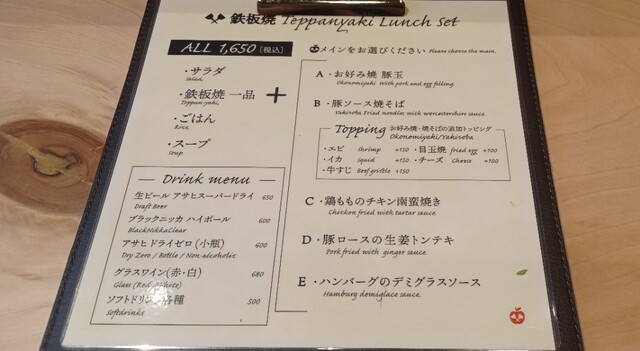 鉄板焼 Teppanyaki Lunch Set
ALL 1,650 [税込]
・サラダ
Salad
・鉄板焼 一品
Teppan-yaki
・ごはん
Rice
・スープ
Soup
+
Drink menu
生ビール アサヒスーパードライ 650
Draft Beer
ブラックニッカ ハイボール 600
BlackNikkaClear
アサヒドライゼロ (小瓶) 600
Dry Zero / Bottle / Non-alcoholic
グラスワイン(赤・白) 680
Glass (Red / White)
ソフトドリンク各種 500
Softdrinks
メインをお選びください Please choose the main.
A・お好み焼 豚玉
Okonomiyaki With pork and egg filling.
B・豚ソース焼そば
Yakisoba Fried noodles with worcestershire sauce.
Topping お好み焼・焼そばの追加トッピング
Okonomiyaki/Yakisoba
・エビ Shrimp +150 ・目玉焼 fried egg +100
・イカ Squid +150 ・チーズ Cheese +100
・牛すじ Beef gristle +150
C・鶏もものチキン南蛮焼き
Chicken fried with tartar sauce.
D・豚ロースの生姜トンテキ
Pork fried with ginger sauce.
E・ハンバーグのデミグラスソース
Hamburg demiglace sauce.